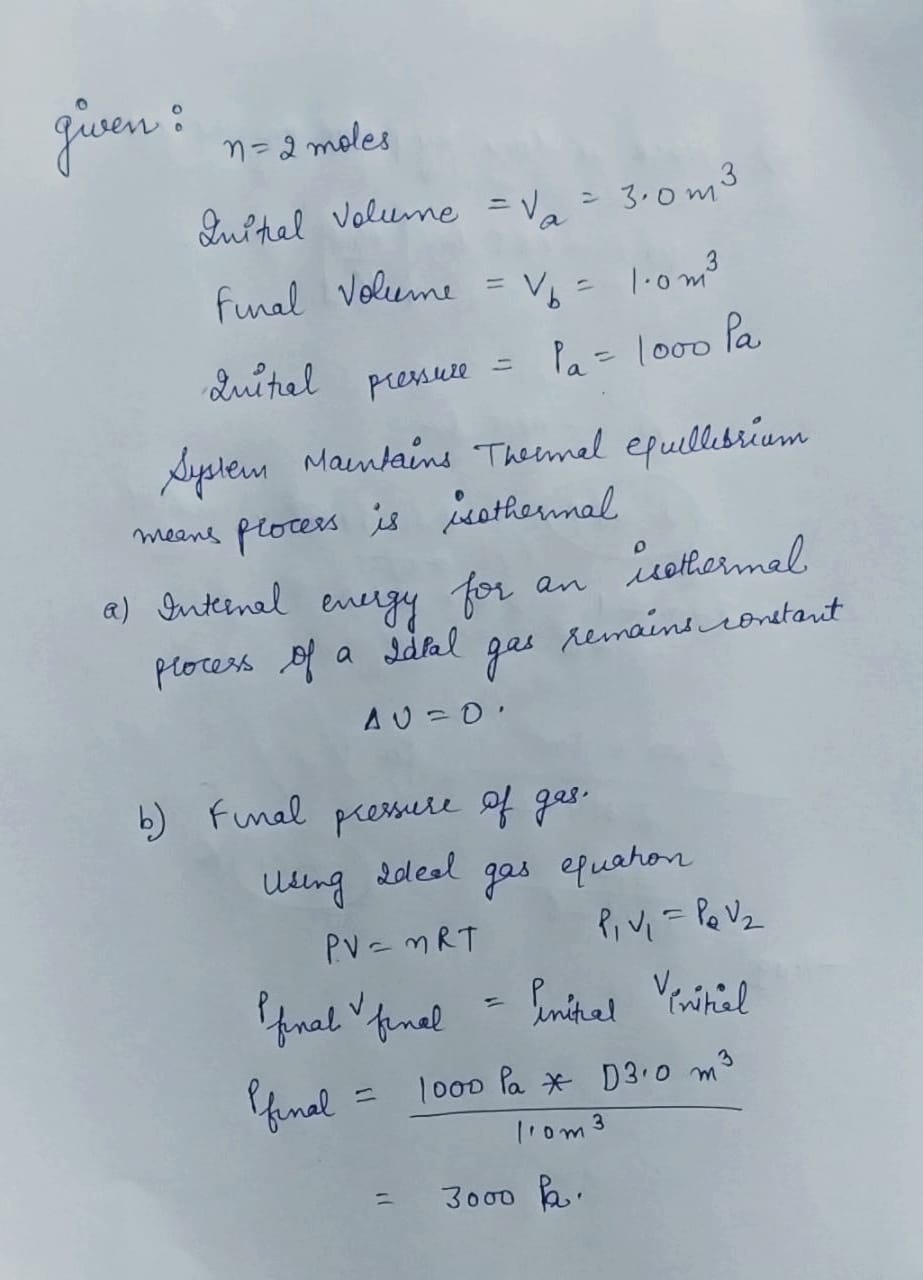 given :
n = 2 moles
Initial Volume = Va = 3.0 m³
Final Volume = Vb = 1.0 m³
Initial pressure = Pa = 1000 Pa
System Maintains Thermal equillibrium
means process is isothermal
a) Internal energy for an isothermal
process of a Ideal gas remains constant
ΔU = 0.
b) Final pressure of gas.
Using Ideal gas equation
PV = nRT P₁V₁ = P₂V₂
Pfinal Vfinal = Pinitial Vinitial
Pfinal = 1000 Pa * 3.0 m³
1.0 m³
= 3000 Pa.